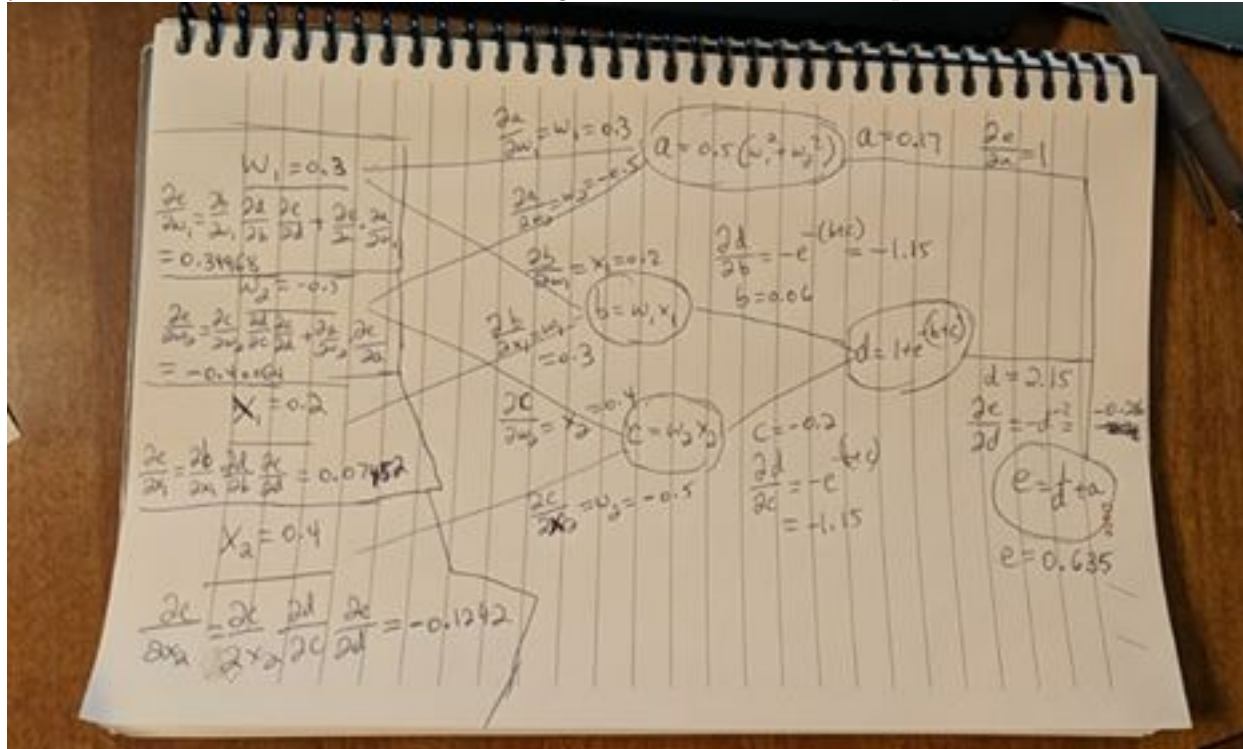 W₁ = 0.3
∂e/∂w₁ = ∂b/∂w₁ ∂d/∂b ∂e/∂d + ∂e/∂a · ∂a/∂w₁
= 0.34968
W₂ = -0.5
∂e/∂w₂ = ∂c/∂w₂ ∂d/∂c ∂e/∂d + ∂a/∂w₂ ∂e/∂a
X₁ = 0.2
∂e/∂x₁ = ∂b/∂x₁ ∂d/∂b ∂e/∂d = 0.07452
X₂ = 0.4
∂e/∂x₂ = ∂c/∂x₂ ∂d/∂c ∂e/∂d = -0.1242
∂a/∂w₁ = w₁ = 0.3
∂a/∂w₂ = w₂ = -0.5
∂b/∂w₁ = x₁ = 0.2
∂b/∂x₁ = w₁
= 0.3
∂c/∂w₂ = x₂ = 0.4
∂c/∂x₂ = w₂ = -0.5
a = 0.5(w₁² + w₂²)
a = 0.17
∂e/∂a = 1
b = w₁x₁
∂d/∂b = -e^-(b+c) = -1.15
b = 0.06
c = w₂x₂
c = -0.2
∂d/∂c = -e^-(b+c)
= -1.15
d = 1+e^-(b+c)
d = 2.15
∂e/∂d = -d⁻² =
e = 1/d + a
e = 0.635